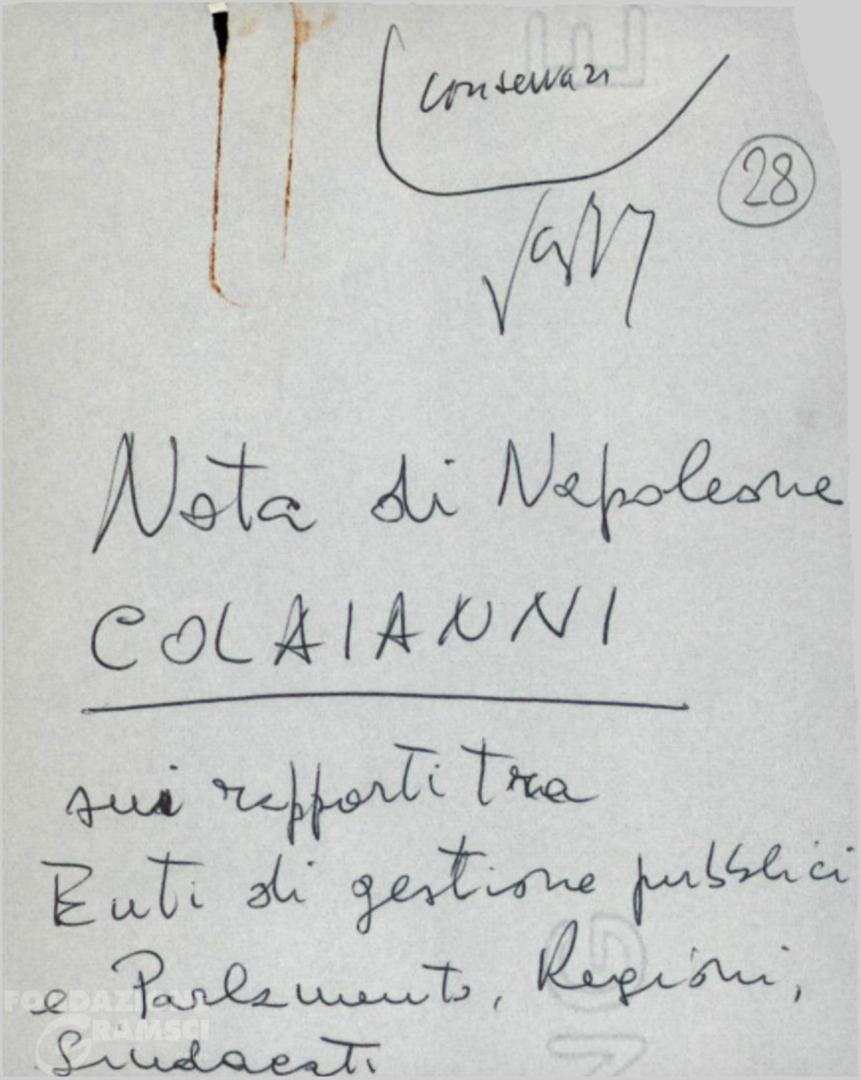 conservare
28
Nota di Napoleone
COLAIANNI
sui rapporti tra
Enti di gestione pubblici
e Parlamento, Regioni,
Sindacati
FONDAZIONE
GRAMSCI